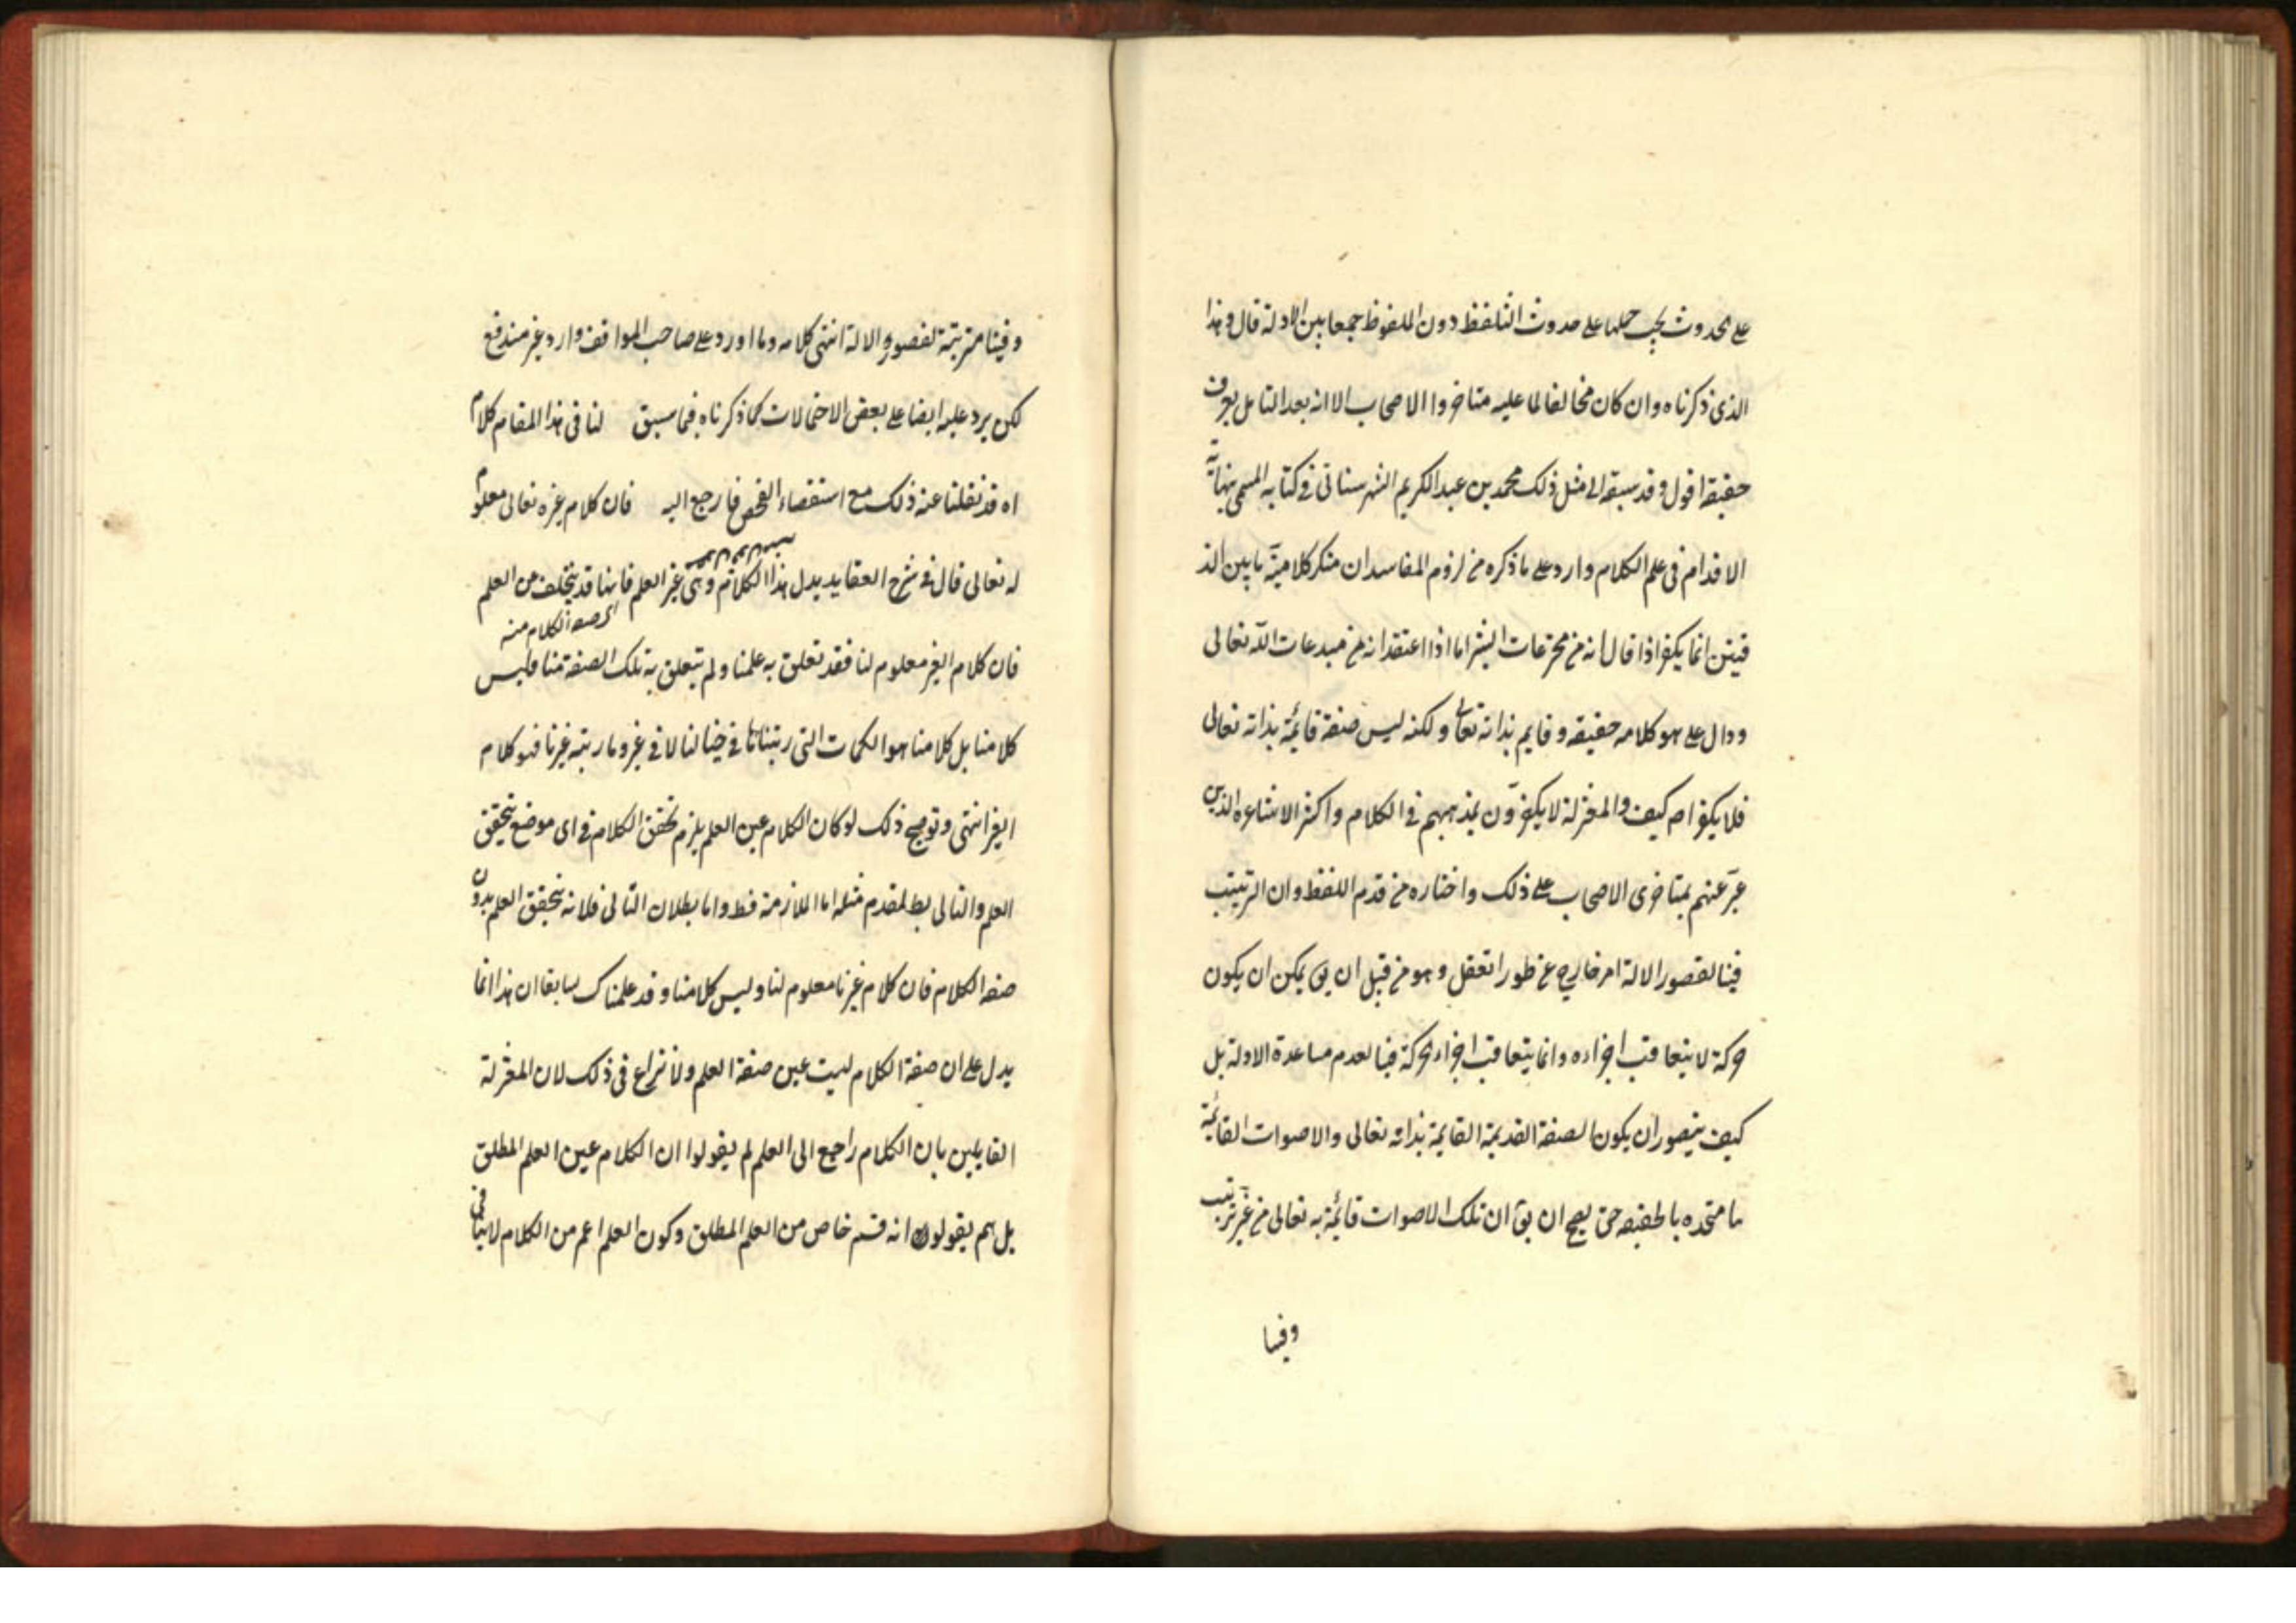 على الحدوث يجب حملها على حدوث التلفظ دون الملفوظ جمعا بين الادلة قال وهذا
الذى ذكرناه وان كان مخالفا لما عليه متاخروا الاصحاب الا انه بعد التامل يعرف
حقيقة اقول وقد سبقه الى مثل ذلك محمد بن عبد الكريم الشهرستانى فى كتابه المسمى بنهاية
الاقدام فى علم الكلام واورد على ما ذكره من لزوم المفاسد ان منكر كلامية ما بين الد
فتين انما يكفر اذا قال انه من مخترعات البشر اما اذا اعتقد انه من مبدعات الله تعالى
ودال على هو كلامه حقيقه وقايم بذاته تعالى ولكنه ليس صفة قائمة بذاته تعالى
فلا يكفر اصلا كيف والمعتزلة لا يكفرون بمذهبهم فى الكلام واكثر الاشاعره الذين
عبر عنهم بمتاخرى الاصحاب على ذلك واختاره من قدم اللفظ وان الترتيب
فينا لقصور الالة امر خارج عن طور العقل وهو من قبيل ان يق يمكن ان يكون
حركة لا يتعاقب اجزاءه وانما يتعاقب اجزاء الحركة فينا لعدم مساعدة الالة بل
كيف يتصور ان يكون الصفة القديمة القايمة بذاته تعالى والاصوات القائمة
بنا متحده بالحقيقه حتى يصح ان يق ان تلك الاصوات قائمة به تعالى من غير ترتيب
وفينا
وفينا مترتبة لقصور الالة انتهى كلامه وما اورد على صاحب المواقف وارد غير مندفع
لكن يرد عليه ايضا على بعض الاحتمالات كما ذكرناه فيما سبق لنا فى هذا المقام كلام
اه قد نقلنا عنه ذلك مع استقصاء الفحص فارجع اليه فان كلام غيره تعالى معلوم
له تعالى قال فى شرح العقايد بدل هذا الكلام وهى غير العلم فانها قد يتخلف عن العلم
اى صفة الكلام منه
فان كلام الغير معلوم لنا فقد تعلق به علمنا ولم يتعلق به تلك الصفة منا فليس
كلامنا بل كلامنا هو الكلمات التى رتبناها فى خيالنا لا فى غيره وما رتبه غيرنا فهو كلام
الغير انتهى وتوضيح ذلك لو كان الكلام عين العلم يلزم تحقق الكلام فى اى موضع يتحقق
العلم والتالى بط المقدم مثله اما الملازمة فظ واما بطلان التالى فلانه يتحقق العلم بدون
صفة الكلام فان كلام غيرنا معلوم لنا وليس كلامنا وقد علمناك سابقا ان هذا انما
يدل على ان صفة الكلام ليست عين صفة العلم ولا نزاع فى ذلك لان المعتزلة
القايلين بان الكلام راجع الى العلم لم يقولوا ان الكلام عين العلم المطلق
بل هم يقولون انه قسم خاص من العلم المطلق وكون العلم اعم من الكلام لا ينافى